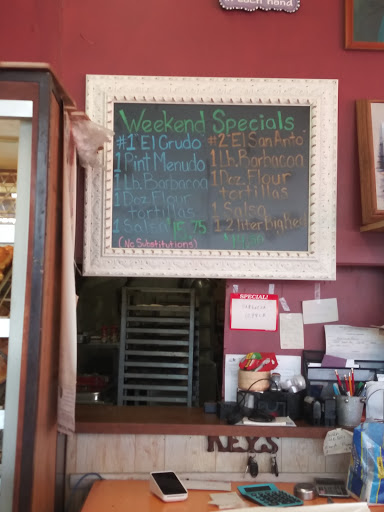 Weekend Specials
#1 El Crudo
1 Pint Menudo
1 Lb. Barbacoa
1 Doz. Flour
tortillas
1 Salsa
(No Substitutions)
#2 El San Anto
1 Lb. Barbacoa
1 Doz. Flour
tortillas
1 Salsa
1 2 liter big red
SPECIAL!
KEYS